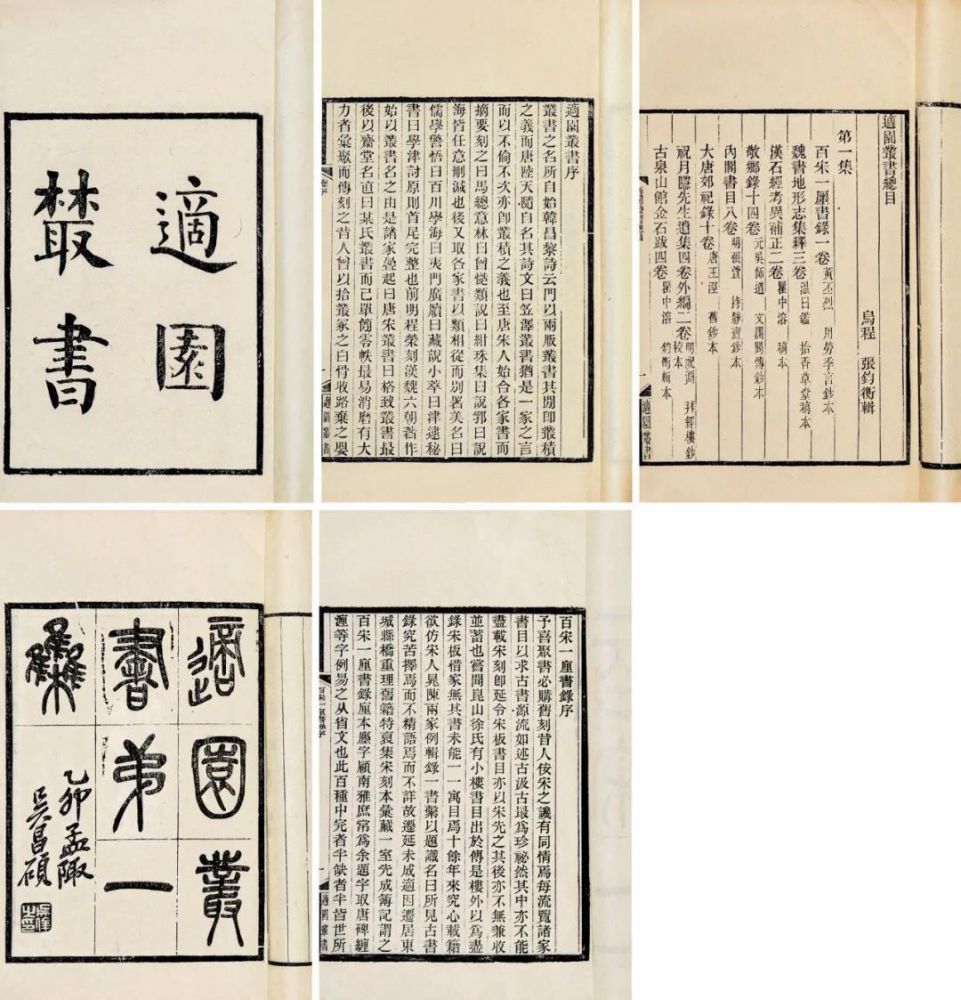 適園
叢書
適園叢書序
叢書之名所自始韓昌黎詩云門以兩版叢書其閒卽叢積
之義而唐陸天隨自名其詩文曰笠澤叢書猶是一家之言
而以不倫不次亦卽叢積之義也至唐宋人始合各家書而
摘要刻之曰馬總意林曰曾慥類說曰紺珠集曰說郛曰說
海皆任意刪減也後又取各家書以類相從而別署美名曰
儒學警悟曰百川學海曰夷門廣牘曰藏說小萃曰津逮秘
書曰學津討原則首尾完整也前明程榮刻漢魏六朝著作
始以叢書名之由是諸家疊起曰唐宋叢書曰格致叢書最
後以齋堂名直曰某氏叢書而已單零帙最易消磨有大
力者彙聚而傳刻之昔人曾以拾叢冢之白骨收路棄之嬰
適園叢書
適園叢書總目
烏程 張鈞衡輯
第一集
百宋一廛書錄一卷 黃丕烈 用勞季言鈔本
魏書地形志集釋三卷 溫日鑑 拾香草堂稿本
漢石經考異補正二卷 瞿中溶 稿本
敬鄉錄十四卷 元吳師道 文瀾閣傳鈔本
內閣書目八卷 明張萱 持靜齋鈔本
大唐郊祀錄十卷 唐王涇 舊鈔本
祝月隱先生遺集四卷外編二卷 明祝淵 拜經樓鈔校本
古泉山館金石跋四卷 瞿中溶 鈞衡輯本
適園叢書
適園叢
書弟一
集
乙卯孟陬
吳昌碩
百宋一廛書錄序
予喜聚書必購舊刻昔人佞宋之譏有同情焉每流覽諸家
書目以求古書源流如述古汲古最爲珍祕然其中亦不能
盡載宋刻卽延令宋板書目亦以宋先之其後亦不無兼收
並蓄也嘗聞崑山徐氏有小樓書目出於傳是樓外以爲盡
錄宋板惜家無其書未能一一寓目焉十餘年來究心載籍
欲仿宋人晁陳兩家例輯錄一書繫以題識名曰所見古書
錄究苦擇焉而不精語焉而不詳故遷延未成適因遷居東
城縣橋重理舊籍特裒集宋刻本彙藏一室先成簿記謂之
百宋一廛書錄廛本㕓字顧南雅庶常爲余題字取唐碑纏
瀍等字例易之从省文也此百種中完者半缺者半皆世所
百宋一廛書錄序
適園叢書